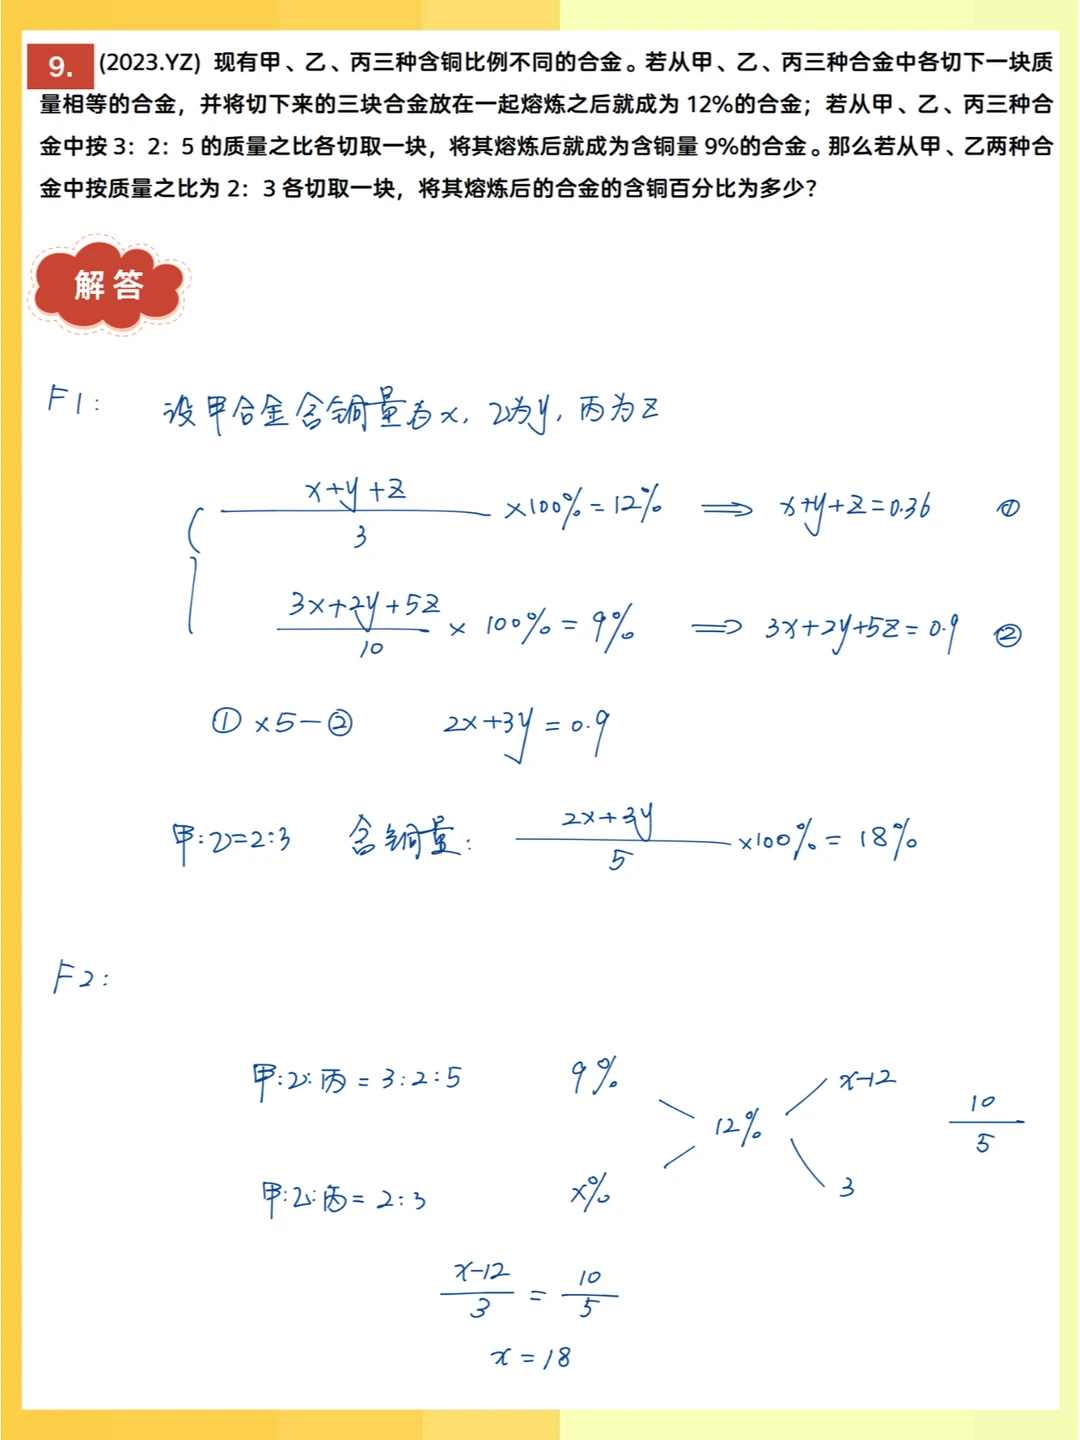 9. (2023.YZ) 现有甲、乙、丙三种含铜比例不同的合金。若从甲、乙、丙三种合金中各切下一块质
量相等的合金，并将切下来的三块合金放在一起熔炼之后就成为 12%的合金；若从甲、乙、丙三种合
金中按 3：2：5 的质量之比各切取一块，将其熔炼后就成为含铜量 9%的合金。那么若从甲、乙两种合
金中按质量之比为 2：3 各切取一块，将其熔炼后的合金的含铜百分比为多少?
解答
F1: 设甲合金含铜量为x, 乙为y, 丙为z
x+y+z/3 ×100% = 12% ⟹ x+y+z=0.36 ①
3x+2y+5z/10 × 100% = 9% ⟹ 3x+2y+5z=0.9 ②
①×5-② 2x+3y=0.9
甲:乙=2:3 含铜量: 2x+3y/5 ×100% = 18%
F2:
甲:乙:丙 = 3:2:5 9% x-12
12% 10/5
甲:乙:丙 = 2:3 x% 3
x-12/3 = 10/5
x = 18